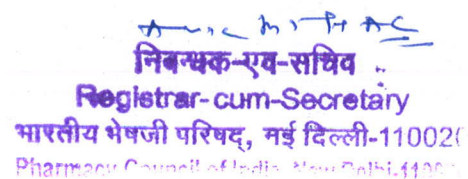 निबन्धक-एव-सचिव
Registrar-cum-Secretary
भारतीय भेषजी परिषद्, नई दिल्ली-110020
Pharmacy Council of India, New Delhi-1100